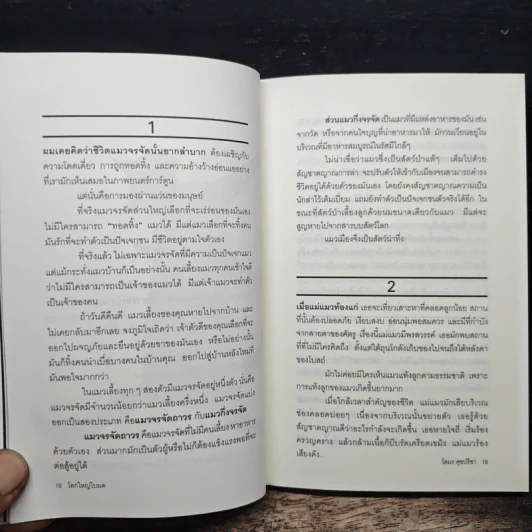 1
ผมเคยคิดว่าชีวิตแมวจรจัดนั้นยากลำบาก ต้องเผชิญกับ
ความโดดเดี่ยว การถูกทอดทิ้ง และความอ้างว้างอ่อนแออย่าง
ที่เรามักเห็นเสมอในภาพยนตร์การ์ตูน
แต่นั่นคือการมองผ่านแว่นของมนุษย์
ที่จริงแมวจรจัดส่วนใหญ่เลือกที่จะเร่ร่อนของมันเอง
ไม่มีใครสามารถ “ทอดทิ้ง” แมวได้ มีแต่แมวเลือกที่จะทิ้งคน
มันรักที่จะทำตัวเป็นปัจเจกชน มีชีวิตอยู่ตามใจตัวเอง
ที่จริงแล้ว ไม่เฉพาะแมวจรจัดที่มีความเป็นปัจเจกแมว
แต่แม้กระทั่งแมวบ้านก็เป็นอย่างนั้น คนเลี้ยงแมวทุกคนเข้าใจดี
ว่าไม่มีใครสามารถเป็นเจ้าของแมวได้ มีแต่เจ้าแมวจะทำตัว
เป็นเจ้าของคน
ถ้าวันดีคืนดี แมวเลี้ยงของคุณหายไปจากบ้าน และ
ไม่เคยกลับมาอีกเลย จงภูมิใจเถิดว่า เจ้าตัวดีของคุณเลือกที่จะ
ออกไปผจญภัยและยืนอยู่ด้วยขาของมันเอง หรือไม่อย่างนั้น
มันก็ทิ้งคนน่าเบื่อบางคนในบ้านคุณ ออกไปสู่บ้านหลังใหม่ที่
มันพอใจมากกว่า
ในแมวเลี้ยงทุก ๆ สองตัวมีแมวจรจัดอยู่หนึ่งตัว นั่นคือ
แมวจรจัดมีจำนวนน้อยกว่าแมวเลี้ยงครึ่งหนึ่ง แมวจรจัดแบ่ง
ออกเป็นสองประเภท คือ แมวจรจัดถาวร กับแมวกึ่งจรจัด
แมวจรจัดถาวร คือแมวจรจัดที่ไม่มีคนเลี้ยง หาอาหาร
ด้วยตัวเอง ส่วนมากมักเป็นตัวผู้หรือไม่ก็ต้องแข็งแรงพอที่จะ
ต่อสู้อยู่ได้
18 โลกใหญ่ใบมด
ส่วนแมวกึ่งจรจัด เป็นแมวที่มีแหล่งอาหารของมัน เช่น
จากวัด หรือจากคนใจบุญที่นำอาหารมาให้ มักวนเวียนอยู่ใน
บริเวณที่มีอาหารสมบูรณ์ในรัศมีใกล้ๆ
ไม่น่าเชื่อว่าแมวซึ่งเป็นสัตว์ป่าแท้ๆ เต็มไปด้วย
สัญชาตญาณการล่า จะปรับตัวให้เข้ากับเมืองจนสามารถดำรง
ชีวิตอยู่ได้ด้วยตัวของมันเอง โดยยังคงสัญชาตญาณความเป็น
นักล่าไว้เต็มเปี่ยม แถมยังทำตัวเป็นปัจเจกชนตัวจริงได้อีก ใน
ขณะที่สัตว์ป่าเลี้ยงลูกด้วยนมขนาดเดียวกับแมว มีแต่จะ
สูญหายไปจากสารบบสัตว์โลก
แมวเมืองจึงเป็นสัตว์น่าทึ่ง
2
เมื่อแม่แมวท้องแก่ เธอจะเที่ยวเสาะหาที่คลอดลูกน้อย สถาน
ที่นั้นต้องปลอดภัย เงียบสงบ อ่อนนุ่มพอสมควร และมีที่กำบัง
จากสายตาของศัตรู เรื่องนี้แม่แมวมีพรสวรรค์ เธอมักพบสถาน
ที่ที่ไม่มีใครคิดถึง ตั้งแต่ใต้ถุนโกดังเก็บของไปจนถึงใต้หลังคา
ของโบสถ์
มักไม่ค่อยมีใครเห็นแมวแท้งลูกตามธรรมชาติ เพราะ
การแท้งลูกของแมวเกิดขึ้นยากมาก
เมื่อใกล้เวลาสำคัญของชีวิต แม่แมวมักเลียบริเวณ
ช่องคลอดบ่อยๆ เนื่องจากบริเวณนั้นขยายตัว เธอรู้ด้วย
สัญชาตญาณดีว่าอะไรกำลังจะเกิดขึ้น เธอหายใจถี่ เริ่มร้อง
ครวญคราง แล้วกล้ามเนื้อก็บีบรัดเครียดเขม็ง แม่แมวร้อง
เสียงดัง...
โตมร ศุขปรีชา 19